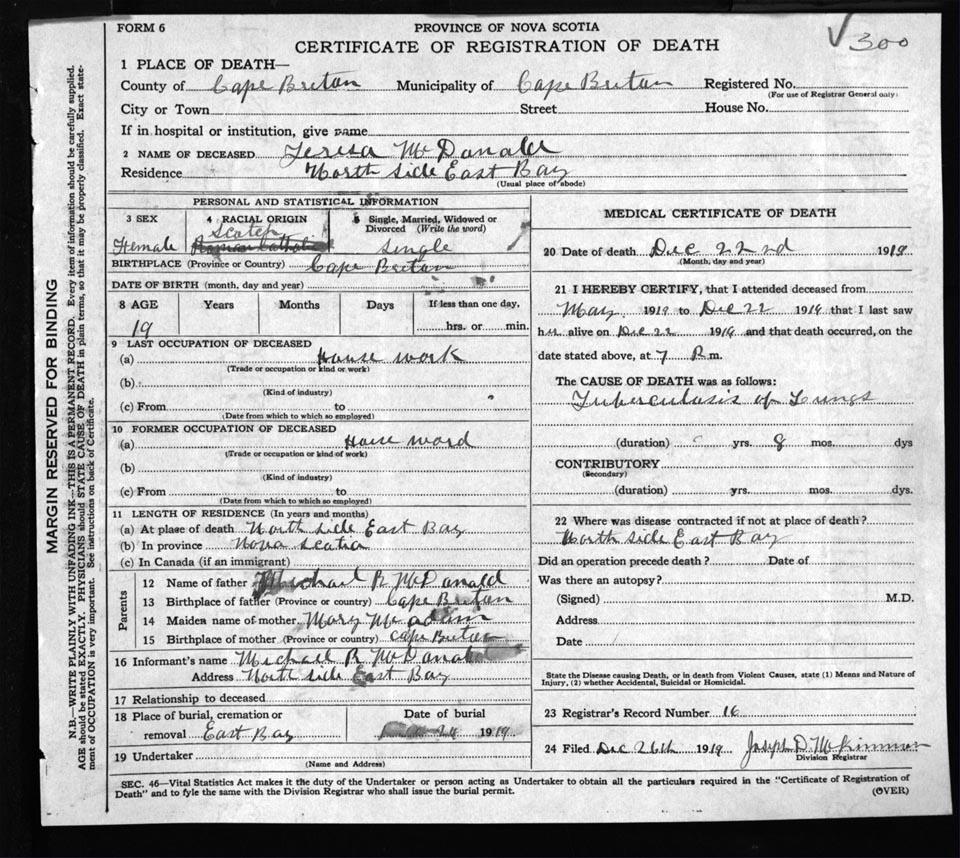 FORM 6
PROVINCE OF NOVA SCOTIA
CERTIFICATE OF REGISTRATION OF DEATH
√ 300
MARGIN RESERVED FOR BINDING
N.B.—WRITE PLAINLY WITH UNFADING INK—THIS IS A PERMANENT RECORD. Every item of information should be carefully supplied.
AGE should be stated EXACTLY. PHYSICIANS should STATE CAUSE OF DEATH in plain terms, so that it may be properly classified. Exact state-
ment of OCCUPATION is very important. See instructions on back of Certificate.
1 PLACE OF DEATH—
County of Cape Breton Municipality of Cape Breton Registered No.
(For use of Registrar General only)
City or Town Street House No.
If in hospital or institution, give name
2 NAME OF DECEASED Teresa McDonald
Residence North Side East Bay
(Usual place of abode)
PERSONAL AND STATISTICAL INFORMATION
3 SEX 4 RACIAL ORIGIN 5 Single, Married, Widowed or Divorced (Write the word)
Female Scotch Roman Catholic Single
BIRTHPLACE (Province or Country) Cape Breton
DATE OF BIRTH (month, day and year)
8 AGE Years Months Days If less than one day,
19 hrs. or min.
9 LAST OCCUPATION OF DECEASED
(a) House work
(Trade or occupation or kind or work)
(b)
(Kind of industry)
(c) From to
(Date from which to which so employed)
10 FORMER OCCUPATION OF DECEASED
(a) House word
(Trade or occupation or kind of work)
(b)
(Kind of industry)
(c) From to
(Date from which to which so employed)
11 LENGTH OF RESIDENCE (In years and months)
(a) At place of death North Side East Bay
(b) In province Nova Scotia
(c) In Canada (if an immigrant)
Parents
12 Name of father Michael R McDonald
13 Birthplace of father (Province or country) Cape Breton
14 Maiden name of mother Mary McAdam
15 Birthplace of mother (Province or country) Cape Breton
16 Informant's name Michael R McDonald
Address North Side East Bay
17 Relationship to deceased
18 Place of burial, cremation or Date of burial
removal East Bay 24 1919
19 Undertaker
(Name and Address)
MEDICAL CERTIFICATE OF DEATH
20 Date of death Dec 22nd 1919
(Month, day and year)
21 I HEREBY CERTIFY, that I attended deceased from
May 1919 to Dec 22 1919 that I last saw
her alive on Dec 22 1919 and that death occurred, on the
date stated above, at 7 P.m.
The CAUSE OF DEATH was as follows:
Tuberculosis of Lungs
(duration) yrs. 8 mos. dys
CONTRIBUTORY
(Secondary)
(duration) yrs. mos. dys.
22 Where was disease contracted if not at place of death?
North Side East Bay
Did an operation precede death? Date of
Was there an autopsy?
(Signed) M.D.
Address
Date
State the Disease causing Death, or in death from Violent Causes, state (1) Means and Nature of
Injury, (2) whether Accidental, Suicidal or Homicidal.
23 Registrar's Record Number 16
24 Filed Dec 26th 1919 Joseph D. McKinnon
Division Registrar
SEC. 46—Vital Statistics Act makes it the duty of the Undertaker or person acting as Undertaker to obtain all the particulars required in the "Certificate of Registration of
Death" and to fyle the same with the Division Registrar who shall issue the burial permit.
(OVER)